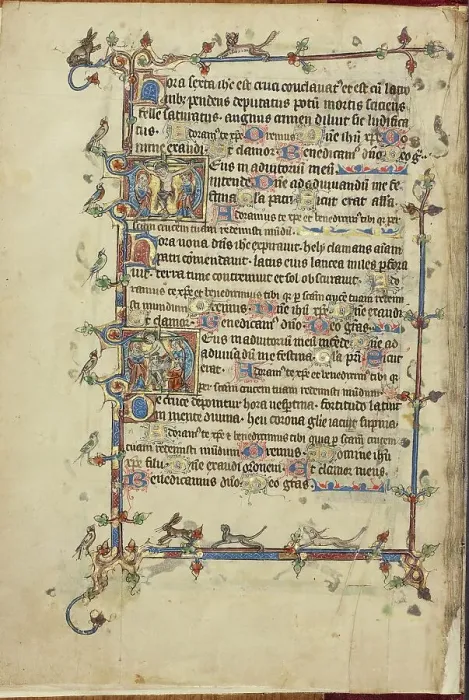 Hora sexta ihc est cruci conclavatꝰ et est cū latro
nibꝫ pendens deputatus potū mortis sciens
felle saturatus. augnus crimen diluit sic ludifica
tus. Adoramꝰ te xp̄e. Oremus. Dn̄e ihū xp̄e. Dn̄
exaudi. Et clamor. Benedicamꝰ dn̄o. Deo g̃.
Deus in adiutoriū meū
intende. Dn̄e ad adiuvandū me fe
stina. Gl̄a patri. Sicut erat. alla.
Adoramus te xp̄e et benedicimꝰ tibi q̄ per
scām crucem tuam redemisti mūdū.
Hora nona dn̄s ihc expiravit. hely clamans aīam
patri cōmendavit. latus eius lancea miles pfora
vit. terra tunc contremuit et sol obscuravit. Ado
ramus te xp̄e et benedicimus tibi q̄ p̄ scām crucē tuam redem
isti mundum. Oremus. Dn̄e ihū xp̄e. Dn̄e exaudi
Et clamor. Benedicamꝰ dn̄o. Deo gr̄as.
Deus in adiutoriū meū intēde. Dn̄e ad
adiuvādū me festina. Gl̄a p̄ri. Sicut
erat. Adoramꝰ te xp̄e et benedicimꝰ tibi q̄
per scām crucem tuam redemisti mūdum
De cruce deponitur hora vesp̄tina. fortitudo latuit
in mente divina. heu corona glīe iacuit supina.
Adoramꝰ te xp̄e et benedicimus tibi quia p̄ scām crucem
tuam redemisti mūdum. Oremus. Domine ihū
xp̄e fili. Dn̄e exaudi oronem. Et clamor meus.
Benedicamus dn̄o. Deo gr̄as.